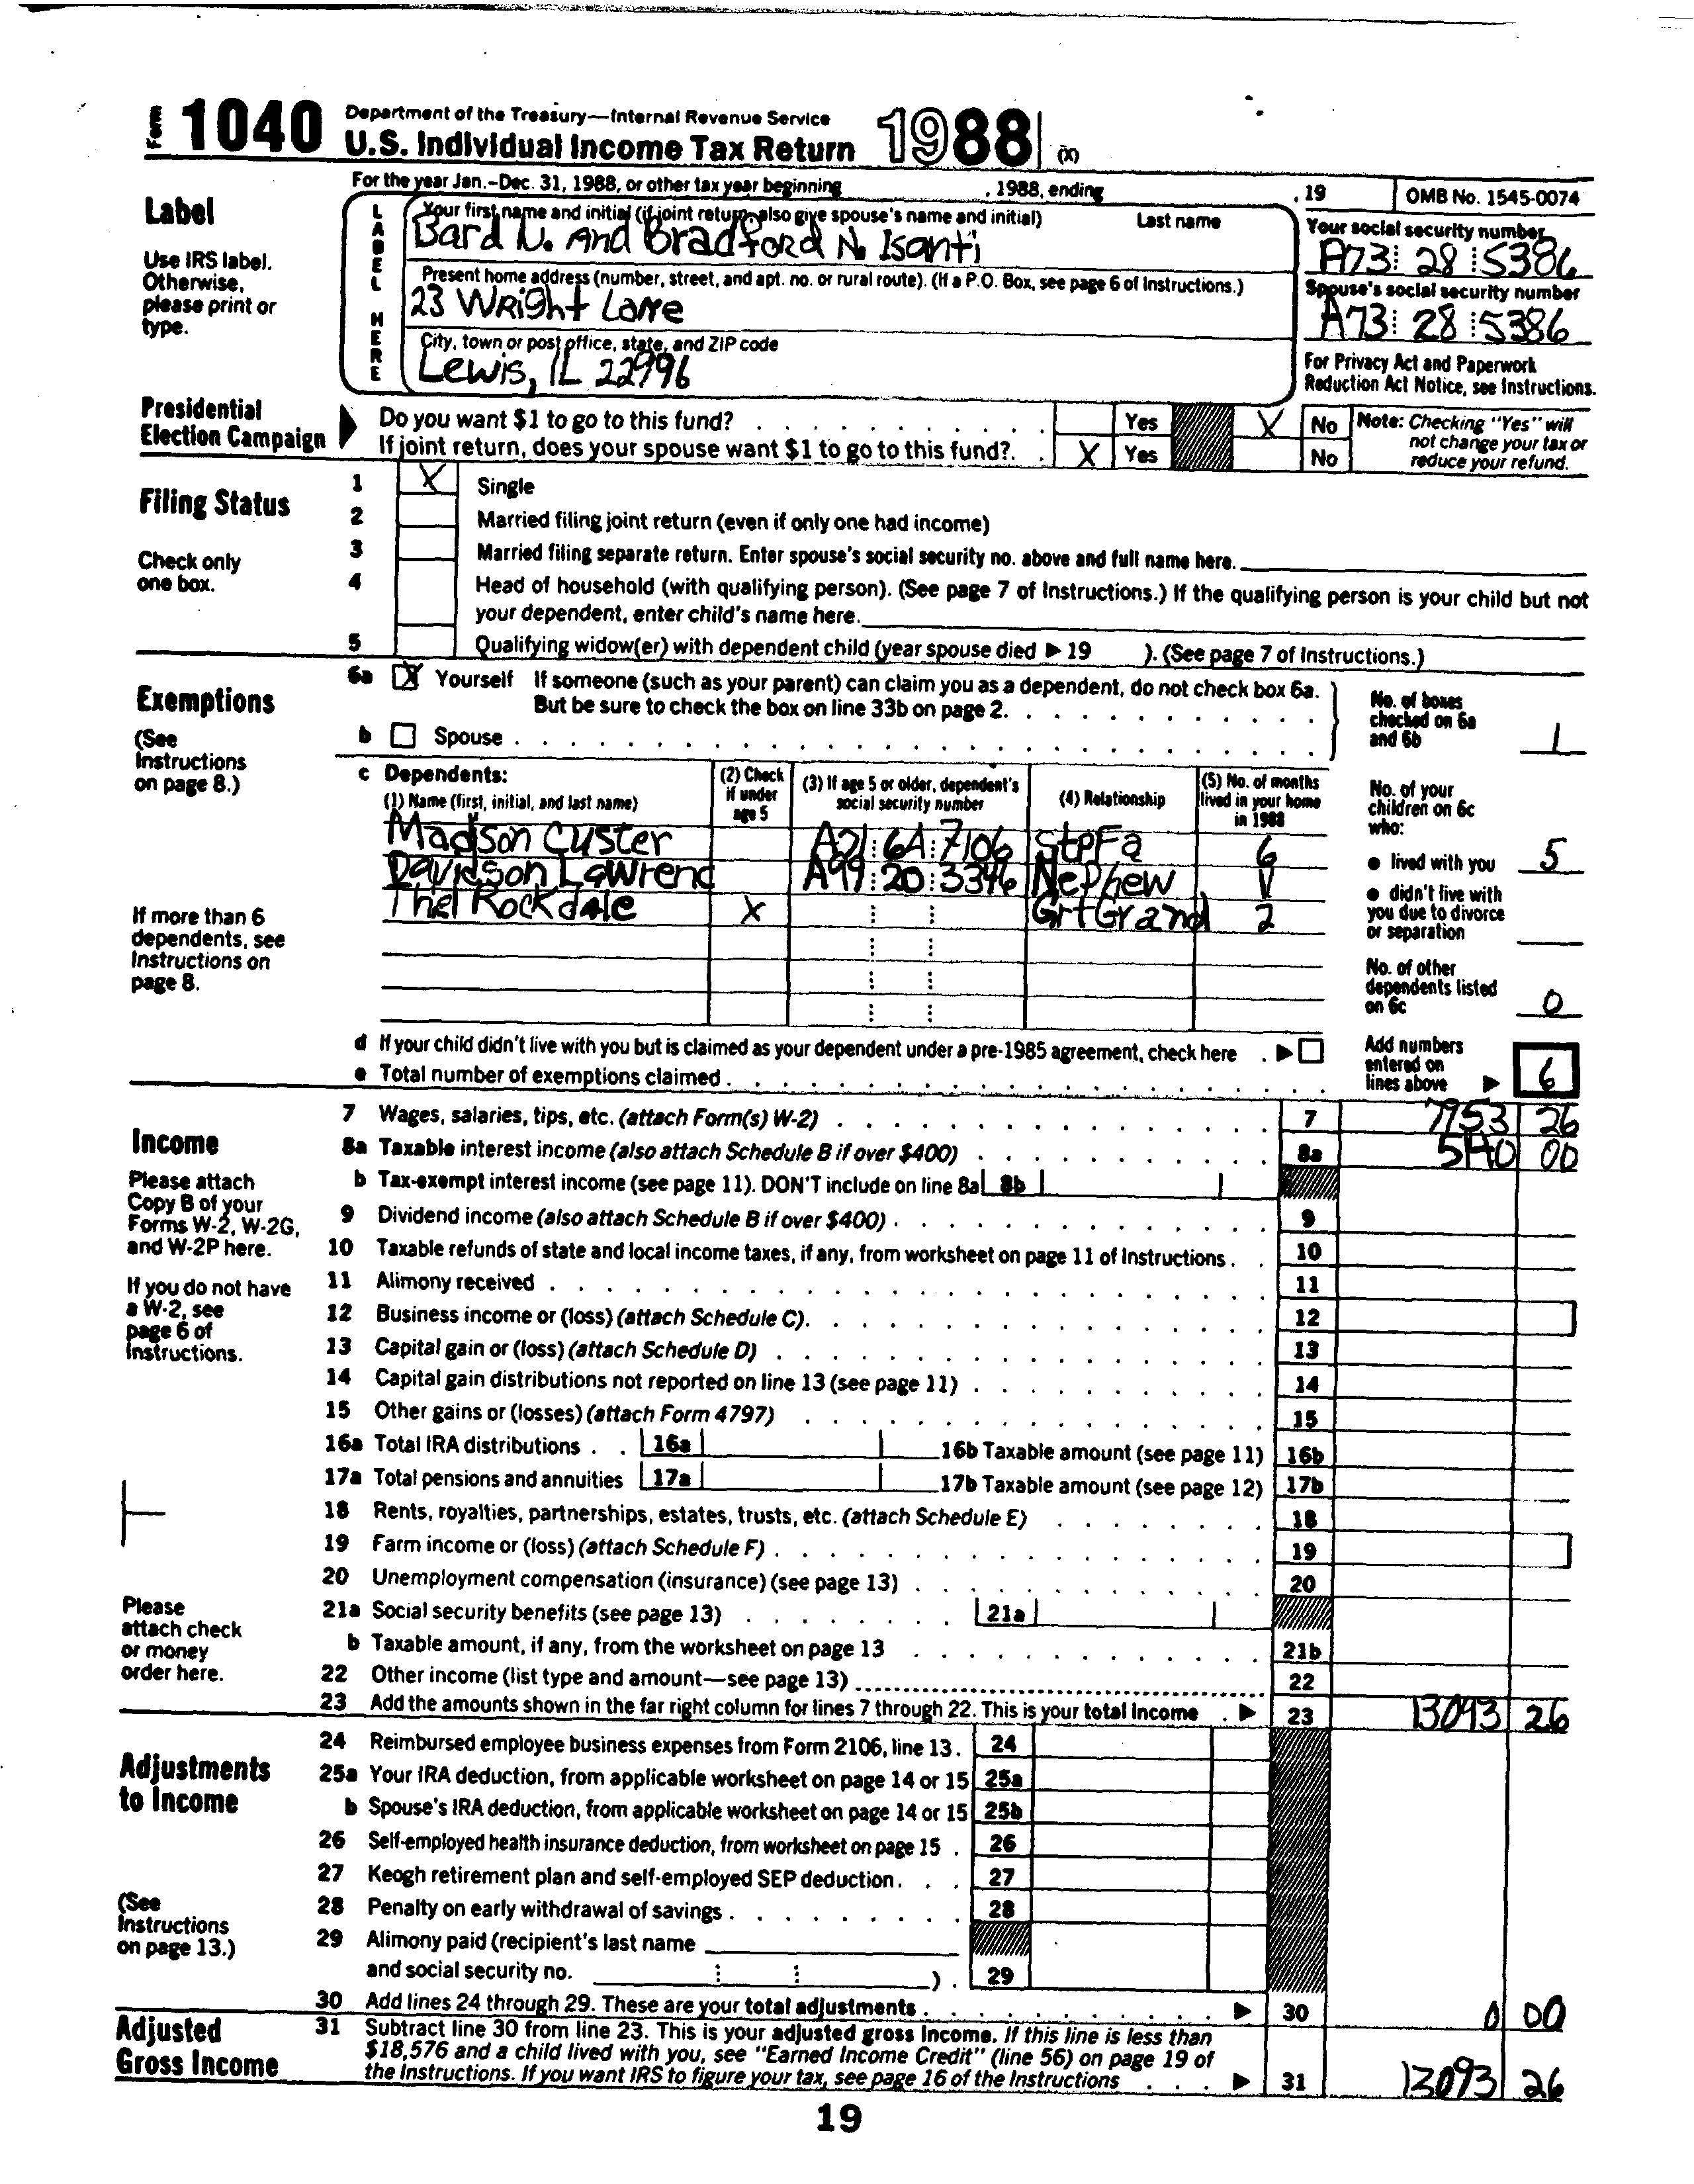 Form 1040 Department of the Treasury—Internal Revenue Service
U.S. Individual Income Tax Return 1988 (X)
For the year Jan.-Dec. 31, 1988, or other tax year beginning , 1988, ending , 19 OMB No. 1545-0074
Label
Use IRS label.
Otherwise,
please print or
type.
LABEL HERE
Your first name and initial (if joint return, also give spouse's name and initial) Last name
Bard N. And Bradford N. Isanti
Your social security number
A73 28 5386
Present home address (number, street, and apt. no. or rural route). (If a P.O. Box, see page 6 of Instructions.)
23 Wright Lane
Spouse's social security number
A73 28 5386
City, town or post office, state, and ZIP code
Lewis, IL 22996
For Privacy Act and Paperwork
Reduction Act Notice, see Instructions.
Presidential
Election Campaign
Do you want $1 to go to this fund? Yes X No
If joint return, does your spouse want $1 to go to this fund? X Yes No
Note: Checking "Yes" will
not change your tax or
reduce your refund.
Filing Status
Check only
one box.
1 X Single
2 Married filing joint return (even if only one had income)
3 Married filing separate return. Enter spouse's social security no. above and full name here.
4 Head of household (with qualifying person). (See page 7 of Instructions.) If the qualifying person is your child but not
your dependent, enter child's name here.
5 Qualifying widow(er) with dependent child (year spouse died ▶ 19 ). (See page 7 of Instructions.)
Exemptions
(See
Instructions
on page 8.)
6a X Yourself If someone (such as your parent) can claim you as a dependent, do not check box 6a.
But be sure to check the box on line 33b on page 2.
b Spouse
No. of boxes
checked on 6a
and 6b 1
c Dependents:
(1) Name (first, initial, and last name)
(2) Check
if under
age 5
(3) If age 5 or older, dependent's
social security number
(4) Relationship
(5) No. of months
lived in your home
in 1988
Madison Custer A21 64 7106 StpFa 6
Davidson Lawrenc A99 20 3346 Nephew 1
Thel Rockdale X GrtGrand 2
If more than 6
dependents, see
Instructions on
page 8.
No. of your
children on 6c
who:
● lived with you 5
● didn't live with
you due to divorce
or separation
No. of other
dependents listed
on 6c 0
d If your child didn't live with you but is claimed as your dependent under a pre-1985 agreement, check here ▶
e Total number of exemptions claimed
Add numbers
entered on
lines above ▶ 6
Income
Please attach
Copy B of your
Forms W-2, W-2G,
and W-2P here.
If you do not have
a W-2, see
page 6 of
Instructions.
Please
attach check
or money
order here.
7 Wages, salaries, tips, etc. (attach Form(s) W-2) 7 7953 26
8a Taxable interest income (also attach Schedule B if over $400) 8a 5140 00
b Tax-exempt interest income (see page 11). DON'T include on line 8a 8b
9 Dividend income (also attach Schedule B if over $400) 9
10 Taxable refunds of state and local income taxes, if any, from worksheet on page 11 of Instructions 10
11 Alimony received 11
12 Business income or (loss) (attach Schedule C) 12
13 Capital gain or (loss) (attach Schedule D) 13
14 Capital gain distributions not reported on line 13 (see page 11) 14
15 Other gains or (losses) (attach Form 4797) 15
16a Total IRA distributions 16a 16b Taxable amount (see page 11) 16b
17a Total pensions and annuities 17a 17b Taxable amount (see page 12) 17b
18 Rents, royalties, partnerships, estates, trusts, etc. (attach Schedule E) 18
19 Farm income or (loss) (attach Schedule F) 19
20 Unemployment compensation (insurance) (see page 13) 20
21a Social security benefits (see page 13) 21a
b Taxable amount, if any, from the worksheet on page 13 21b
22 Other income (list type and amount—see page 13) 22
23 Add the amounts shown in the far right column for lines 7 through 22. This is your total income ▶ 23 13093 26
Adjustments
to Income
(See
Instructions
on page 13.)
24 Reimbursed employee business expenses from Form 2106, line 13. 24
25a Your IRA deduction, from applicable worksheet on page 14 or 15 25a
b Spouse's IRA deduction, from applicable worksheet on page 14 or 15 25b
26 Self-employed health insurance deduction, from worksheet on page 15 26
27 Keogh retirement plan and self-employed SEP deduction 27
28 Penalty on early withdrawal of savings 28
29 Alimony paid (recipient's last name
and social security no. ) 29
30 Add lines 24 through 29. These are your total adjustments ▶ 30 0 00
Adjusted
Gross Income
31 Subtract line 30 from line 23. This is your adjusted gross income. If this line is less than
$18,576 and a child lived with you, see "Earned Income Credit" (line 56) on page 19 of
the Instructions. If you want IRS to figure your tax, see page 16 of the Instructions ▶ 31 13093 26
19